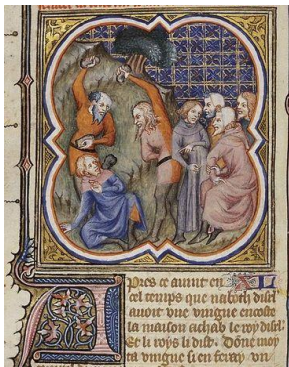 Apres ce auint en
cel temps que naboth disrl
auoit vne vingne encoste
la maison achab le roy disrl.
Et li roys li dist. Dõne moy
ta vingne si en feray vn